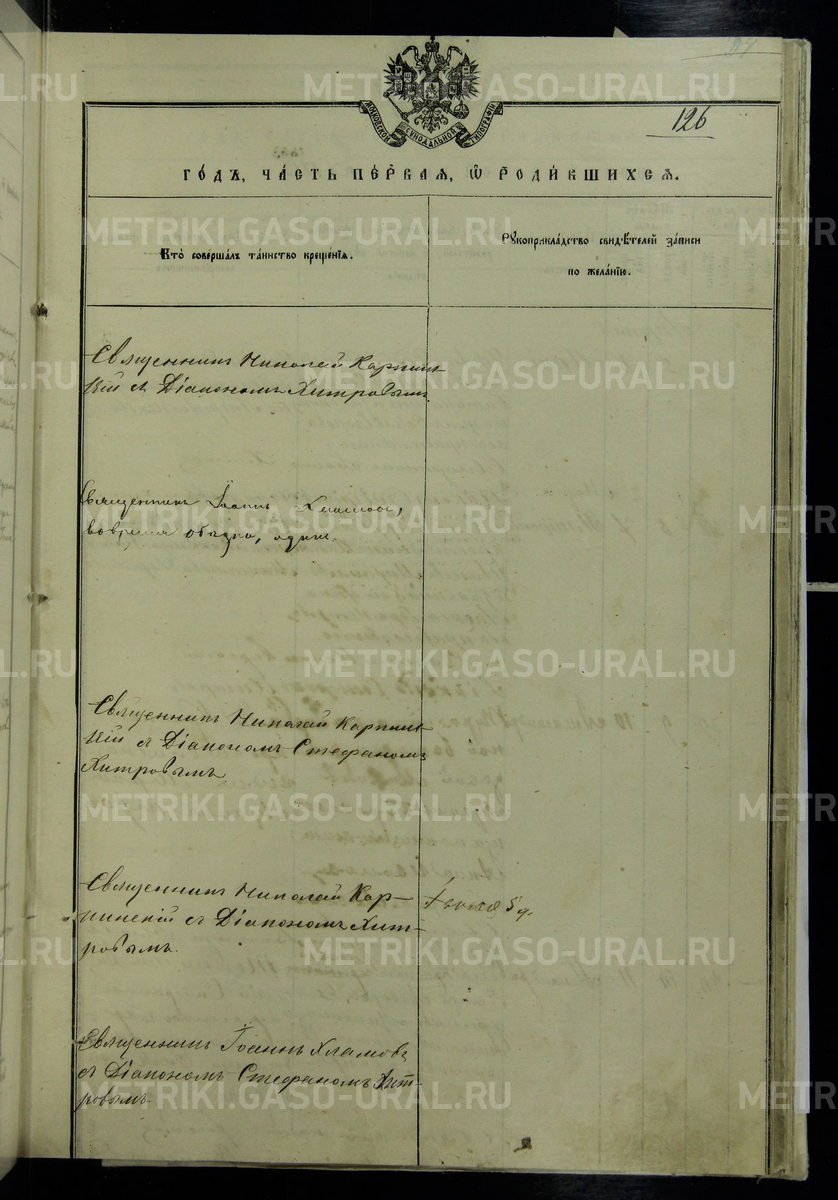 126
МОСКОВСКОЙ СѴНОДАЛЬНОЙ ТИПОГРАФІИ
ГО́ДЪ, ЧА́СТЬ ПЕ́РВАѦ, Ѡ РОДИ́ВШИХСѦ.
Кто̀ соверша́лъ та́инство креще́нїѧ.
Рꙋкоприкла́дство свидѣ́телей за́писи
по жела́нїю.
Священникъ Николай Карпин
скій съ Діакономъ Хитровымъ.
Священникъ Іоаннъ Хламовъ,
во время обѣдни, одинъ.
Священникъ Николай Карпин
скій съ Діакономъ Стефаномъ
Хитровымъ.
Священникъ Николай Кар-
пинскій съ Діакономъ Хит-
ровымъ.
Священникъ Іоаннъ Хламовъ
съ Діакономъ Стефаномъ Хит-
ровымъ.
METRIKI.GASO-URAL.RU